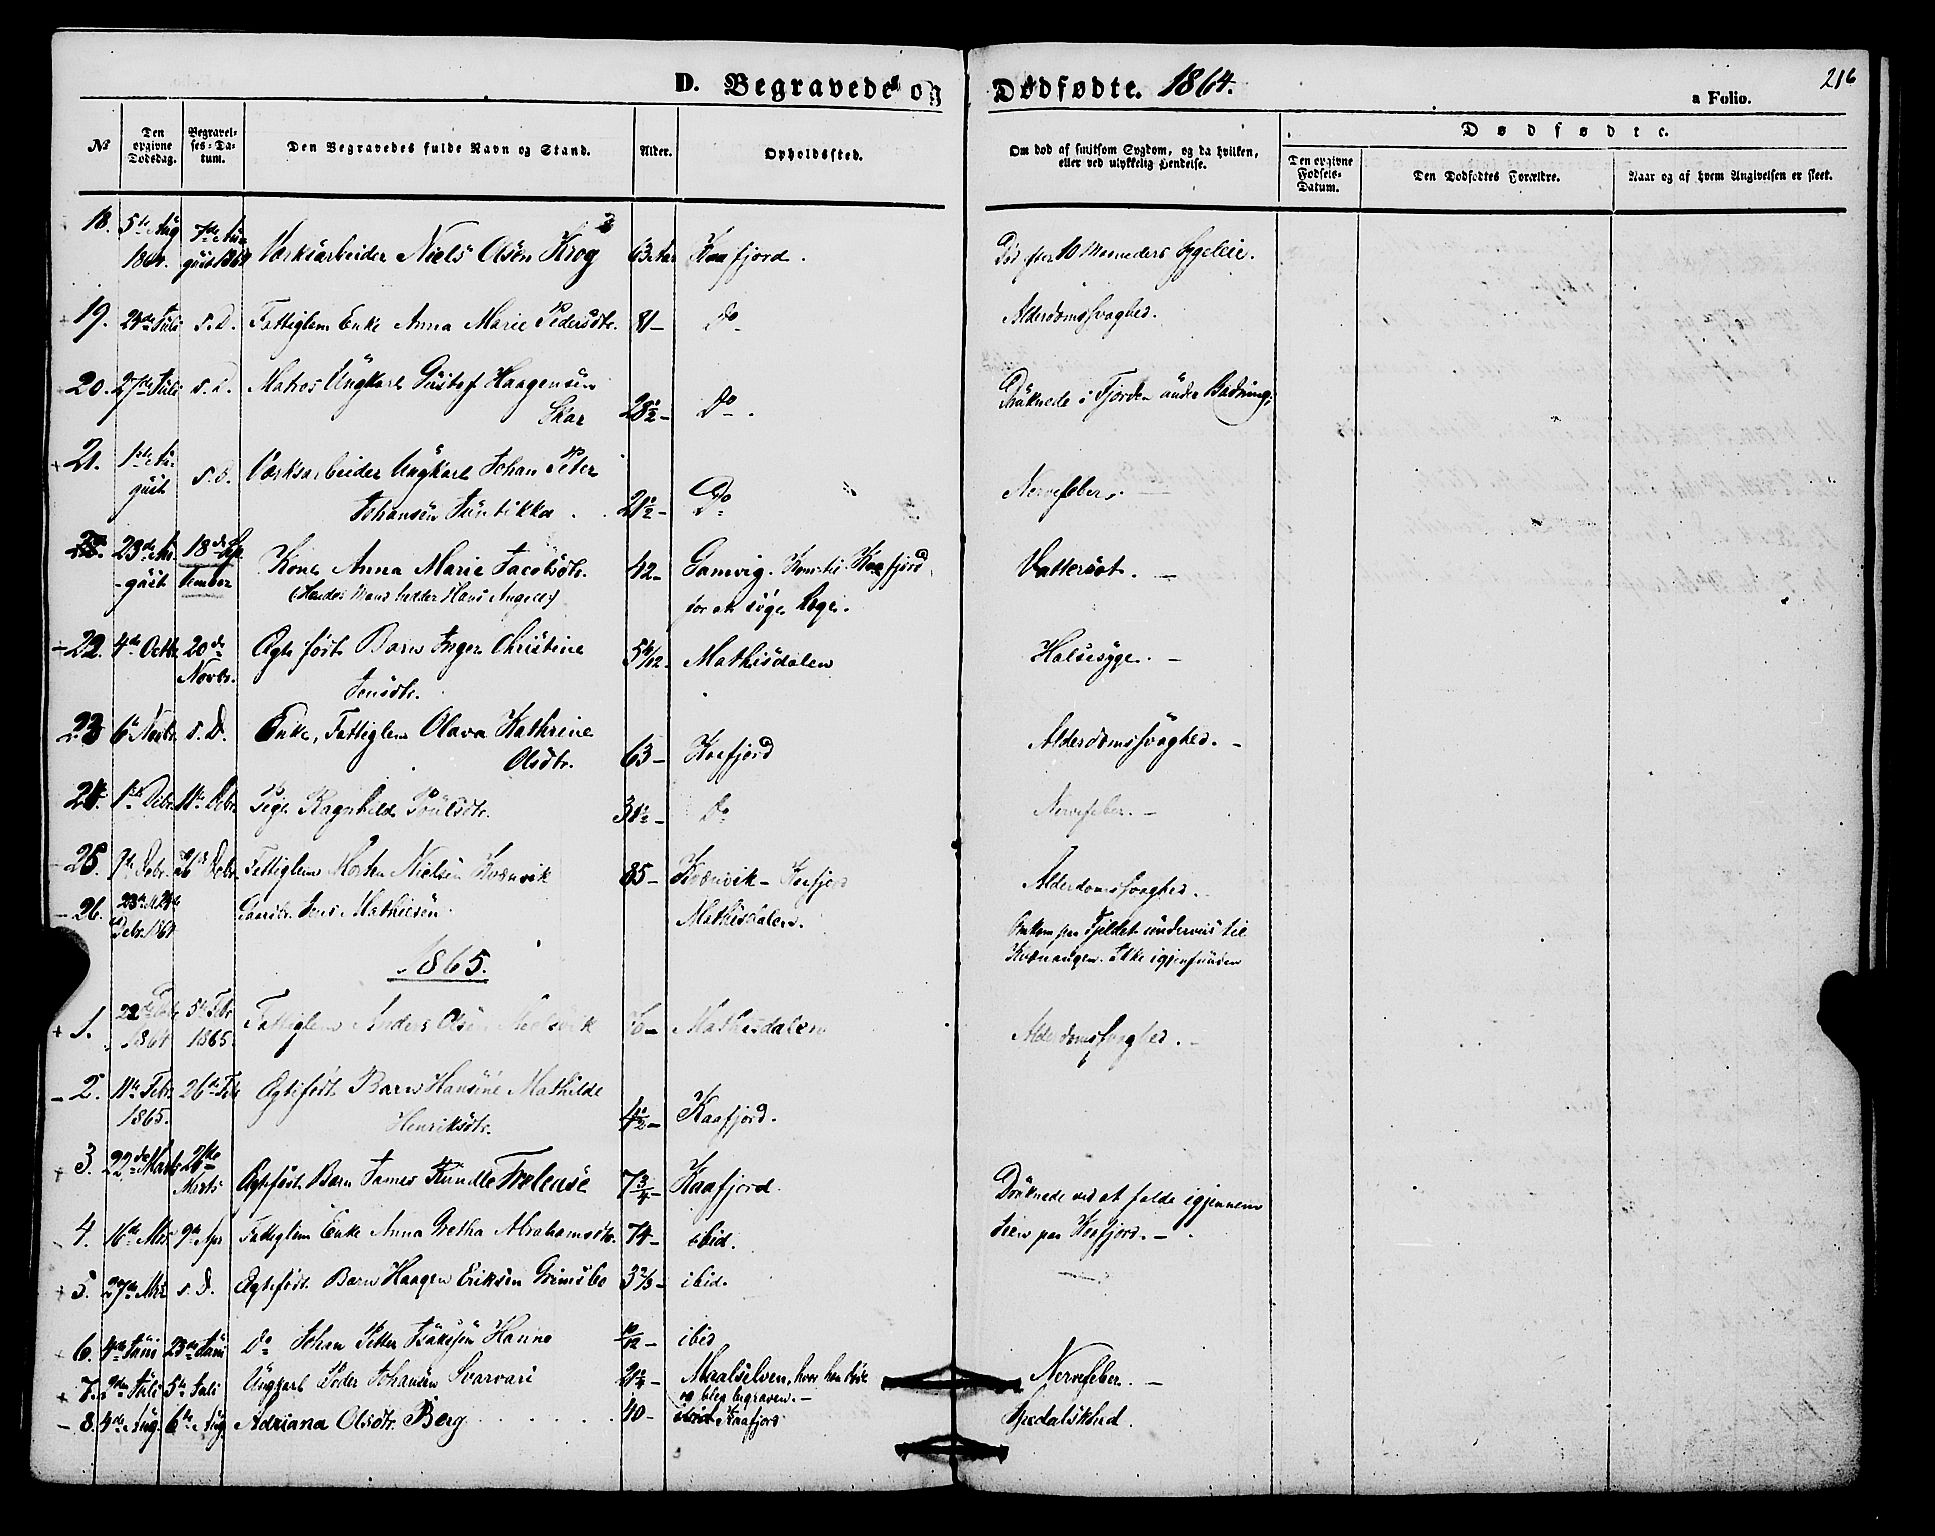 D. Begravede og Dødfødte. 1864.
216
a Folio.
№
Den opgivne Dødsdag.
Begravelses-Datum.
Den Begravedes fulde Navn og Stand.
Alder.
Opholdssted.
Om død af smitsom Sygdom, og da hvilken, eller ved ulykkelig Hendelse.
Dødfødte.
Den opgivne Fødsels-Datum.
Den Dødfødtes Forældre.
Naar og af hvem Angivelsen er skeet.
18. 5te Aug 1864. 7de August 1864 Værksarbeider Niels Olsen Krog 63 Aar Kaafjord. Død efter 10 Maaneders Sygeleie.
19. 24de Juli s. D. Fattiglem Enke Anna Marie Pedersdtr. 81 – Do Alderdomssvaghed.
20. 27de Juli s. D. Matros Ungkarl Gustaf Haagensen
Skar 28½ – Do Druknede i Fjorden under Badning.
21. 1ste August s. D. Værksarbeider Ungkarl Johan Peter
Johansen Juntikka 21½ – Do Nervefeber. –
23de August 18de September Kone Anna Marie Jacobsdtr. 42 – Gamvig. Kom til Kaafjord Vattersot. –
(Hendes Mand hedder Hans Angel) for at søge Læge.
22. 4de Octbr. 20de Novbr. Ægtefødt Barn Inger Christine
Jensdtr. 5 /12 – Mathisdalen Halssyge. –
23 6te Novbr. s. D. Enke, Fattiglem Olava Kathrine
Olsdtr. 63 – Kaafjord Alderdomssvaghed. –
24. 1ste Debr. 11te Debr. Pige Ragnhild Poulsdtr. 31½ – Do Nervefeber. –
25. 7de Debr. Debr. Fattiglem Morten Nielsen Kvænvik 85 – Kvænvik – Kaafjord Alderdomssvaghed. –
26. Debr. 1864 Gaardbr. Jens Mathiesen. Mathisdalen. Omkom paa Fjeldet underveis til
Kvænangen. Ikke igjenfunden
1865.
1. 22de 1864 5te Febr 1865. Fattiglem Anders Olsen Mathisdalen Alderdomssvaghed. –
2. 11te Febr. 1865. 26de Feb Ægtefødt Barn Hansine Mathilde
Henriksdtr. 4½ – Kaafjord.
3. 22de Marts Marts Ægtefødt Barn James Rundle Trelease 7¾ – Kaafjord. Druknede ved at falde igjennem
Isen paa Kaafjord. –
4. 16de Mts. 9de Apr Fattiglem Enke Anna Gretha Abrahamsdtr. 74 – ibid.
5. 27de Mts s. D. Ægtefødt Barn Haagen Eriksen Grimsbo 3⅔ – ibid.
6. 4de Juni 23de Juni Do Johan Petter Isaksen Hanno 10/12 – ibid
7. 2den Juli 5te Juli Ungkarl Peder Johansen Svarvari 21¼ – Maalselven, hvor han døde Nervefeber. –
og blev begraven. –
8. 4de Aug. 6te Aug. Adriana Olsdtr. Berg 40 – ibid Kaafjord Spedalskhed.